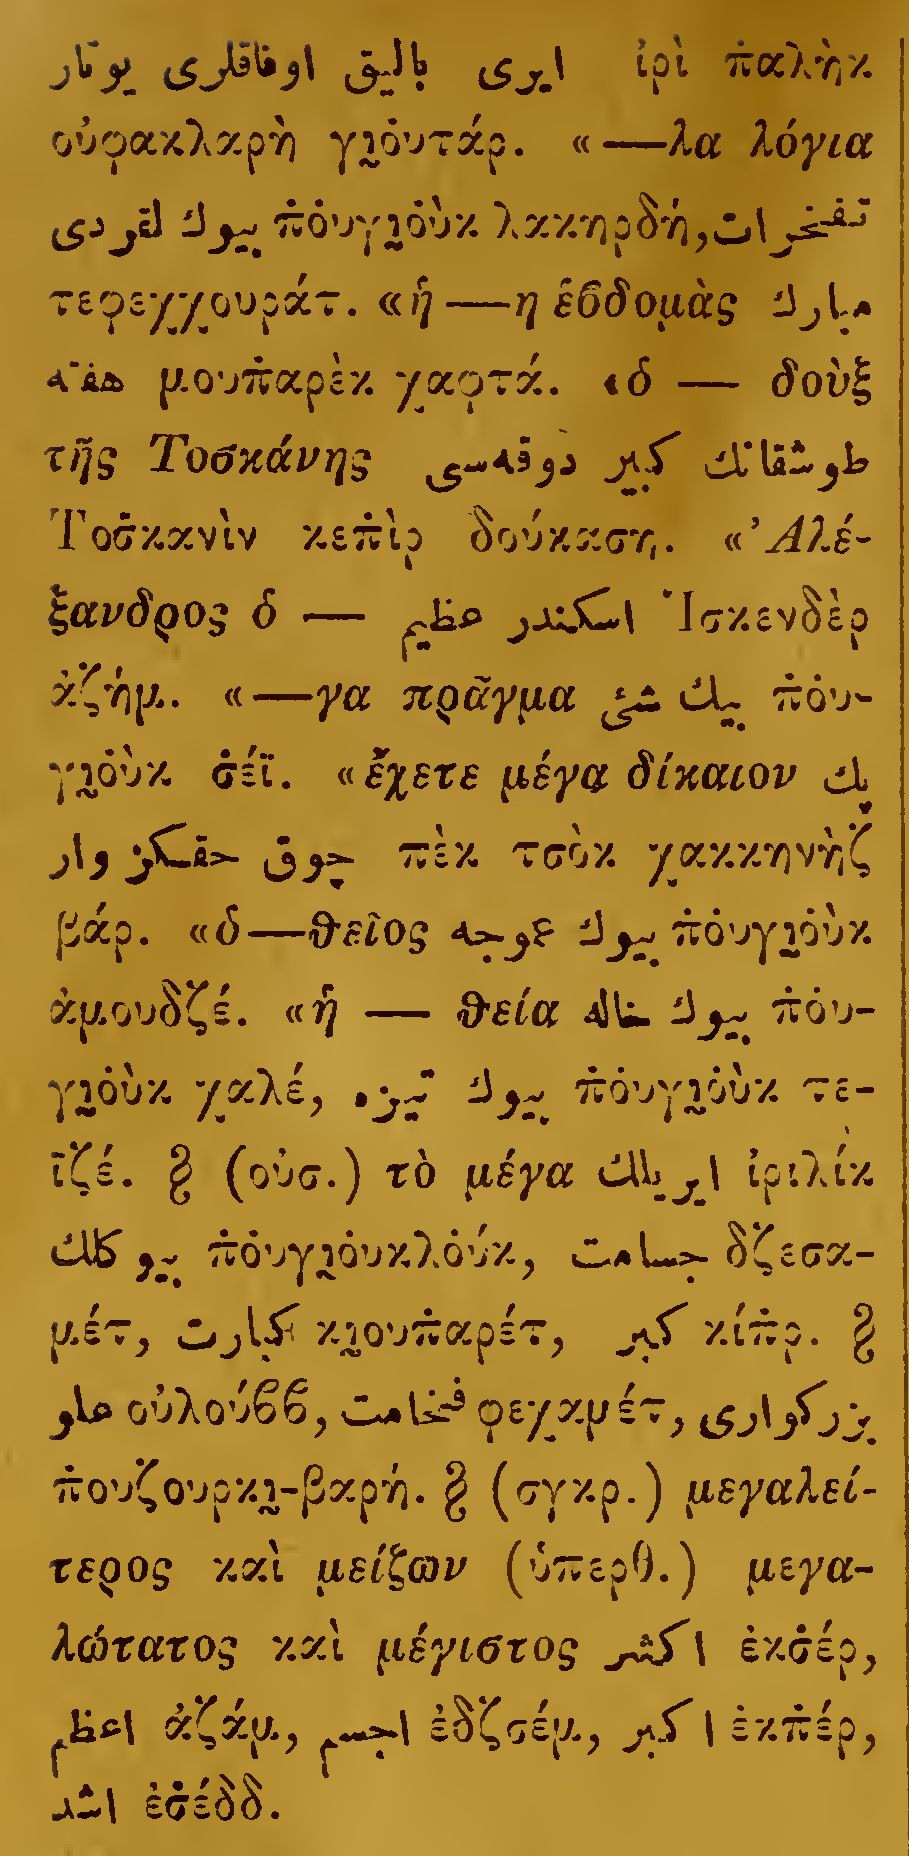 ایری بالیق اوفاقلری یوتار ἰρὶ π̇αλὴκ
οὐφακλαρὴ γιο̇υτάρ. «—λα λόγια
بیوك لقردی π̇ο̇υγιο̇ὺκ λακηρδή, تفخرات
τεφεχχουράτ. «ἡ—η ἑβδομὰς مبارك
هفته μουπ̇αρὲκ χαφτά. «ὁ — δοὺξ
τῆς Τοσκάνης طوسقانك كبیر دوقه‌سی
Τοσκανὶν κεπ̇ὶρ δούκαση. «Ἀλέ-
ξανδρος ὁ — اسكندر عظیم Ἰσκενδὲρ
ἀζήμ. «—γα πρᾶγμα بیك شئ π̇ο̇υ-
γιο̇ὺκ σ̇έϊ. «ἔχετε μέγα δίκαιον پك
چوق حقكز وار πὲκ τσὸκ χακκηνὴζ
βάρ. «ὁ—θεῖος بیوك عوجه π̇ο̇υγιο̇ὺκ
ἀμουδζέ. «ἡ — θεία بیوك خاله π̇ο̇υ-
γιο̇ὺκ χαλέ, بیوك تیزه π̇ο̇υγιο̇ὺκ τε-
ϊζέ. § (οὐσ.) τὸ μέγα ایریلك ἰριλίκ
بیوكلك π̇ο̇υγιο̇υκλο̇ύκ, جسامت δζεσα-
μέτ, كبارت κιουπ̇αρέτ, كبر κίπ̇ρ. §
علو οὐλούββ, فخامت φεχαμέτ, بزركواری
π̇ουζουρκι-βαρή. § (συκρ.) μεγαλεί-
τερος καὶ μείζων (ὑπερθ.) μεγα-
λώτατος καὶ μέγιστος اكثر ἐκσ̇έρ,
اعظم ἀζάμ, اجسم ἐδζσέμ, اكبر ἐκπ̇έρ,
اشد ἐσ̇έδδ.